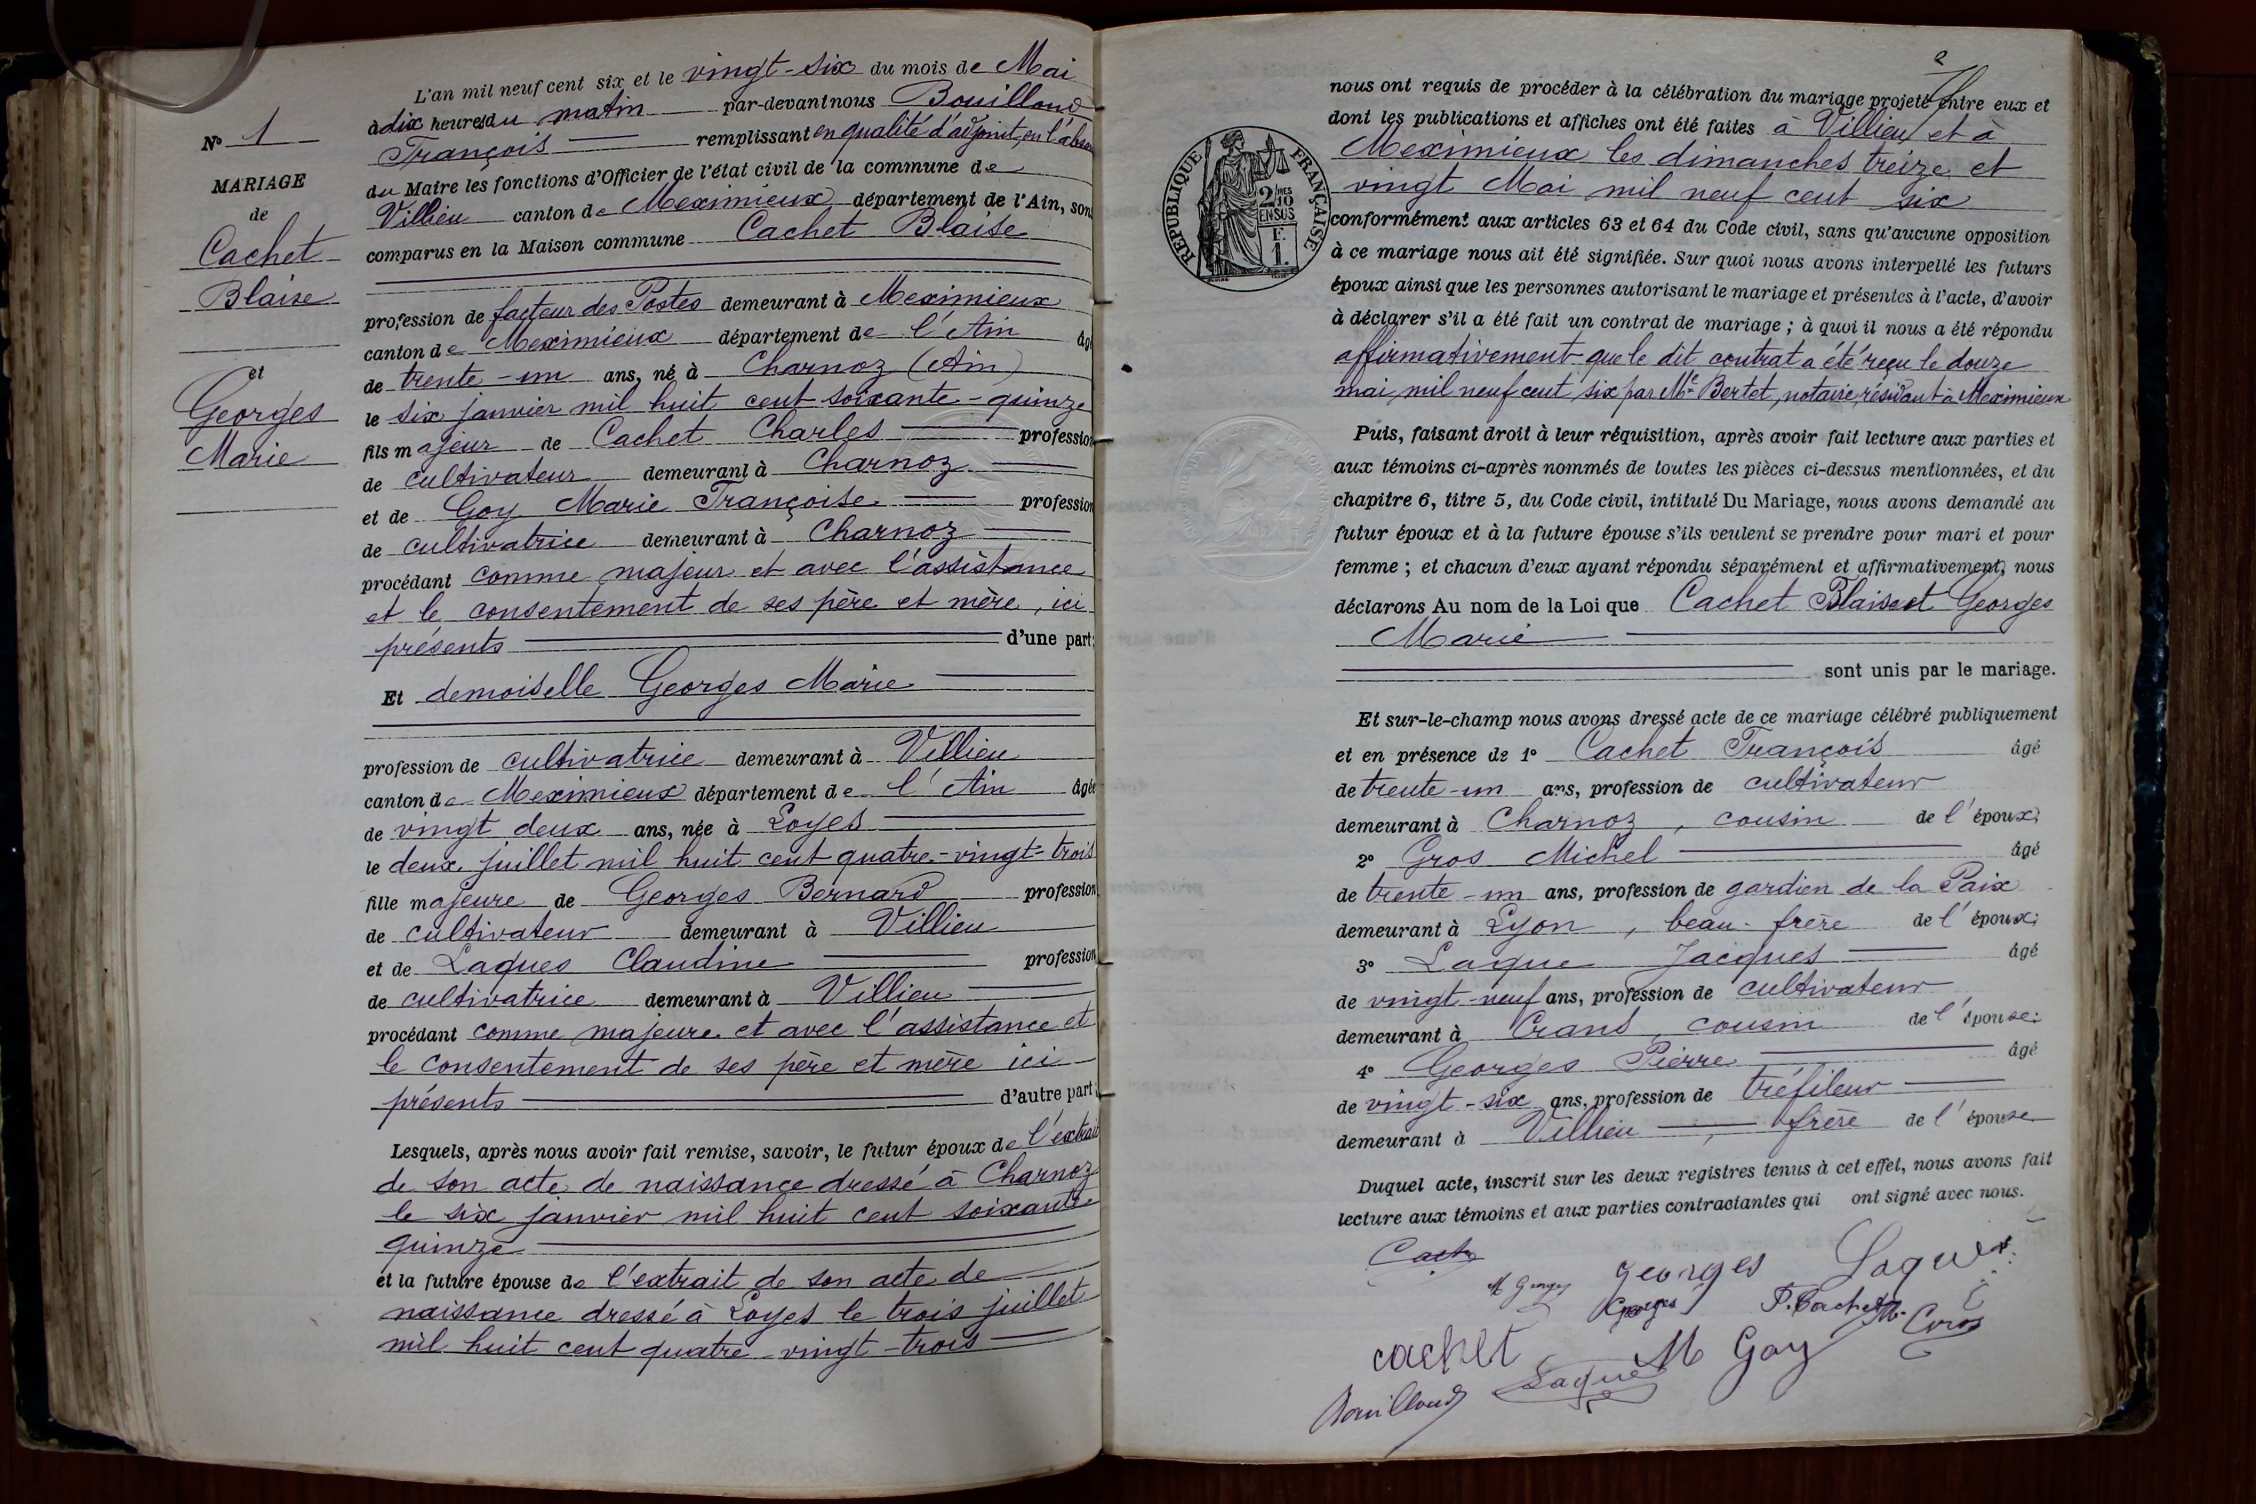 L'an mil neuf cent six et le vingt-six du mois de Mai
à dix heures du matin par-devant nous Bouilloud
François remplissant en qualité d'adjoint, en l'absen
du Maire les fonctions d'Officier de l'état civil de la commune de
Villieu canton de Meximieux département de l'Ain, son
comparus en la Maison commune Cachet Blaise
profession de facteur des Postes demeurant à Meximieux
canton de Meximieux département de l'Ain âgé
de trente-un ans, né à Charnoz (Ain)
le six janvier mil huit cent soixante-quinze
fils majeur de Cachet Charles profession
de cultivateur demeurant à Charnoz
et de Goy Marie Françoise profession
de cultivatrice demeurant à Charnoz
procédant comme majeur et avec l'assistance
et le consentement de ses père et mère, ici
présents d'une part;
Et demoiselle Georges Marie
profession de cultivatrice demeurant à Villieu
canton de Meximieux département de l'Ain âgée
de vingt deux ans, née à Loyes
le deux juillet mil huit cent quatre-vingt-trois
fille majeure de Georges Bernard profession
de cultivateur demeurant à Villieu
et de Laques Claudine profession
de cultivatrice demeurant à Villieu
procédant comme majeure et avec l'assistance et
le consentement de ses père et mère ici
présents d'autre part;
Lesquels, après nous avoir fait remise, savoir, le futur époux de l'extrait
de son acte de naissance dressé à Charnoz
le six janvier mil huit cent soixante
quinze
et la future épouse de l'extrait de son acte de
naissance dressé à Loyes le trois juillet
mil huit cent quatre-vingt-trois
N° 1
MARIAGE
de
Cachet
Blaise
et
Georges
Marie
2
nous ont requis de procéder à la célébration du mariage projeté entre eux et
dont les publications et affiches ont été faites à Villieu et à
Meximieux les dimanches treize et
vingt Mai mil neuf cent six
conformément aux articles 63 et 64 du Code civil, sans qu'aucune opposition
à ce mariage nous ait été signifiée. Sur quoi nous avons interpellé les futurs
époux ainsi que les personnes autorisant le mariage et présentes à l'acte, d'avoir
à déclarer s'il a été fait un contrat de mariage ; à quoi il nous a été répondu
affirmativement que le dit contrat a été reçu le douze
mai, mil neuf cent six par Me Bertet, notaire, résidant à Meximieux
Puis, faisant droit à leur réquisition, après avoir fait lecture aux parties et
aux témoins ci-après nommés de toutes les pièces ci-dessus mentionnées, et du
chapitre 6, titre 5, du Code civil, intitulé Du Mariage, nous avons demandé au
futur époux et à la future épouse s'ils veulent se prendre pour mari et pour
femme ; et chacun d'eux ayant répondu séparément et affirmativement, nous
déclarons Au nom de la Loi que Cachet Blaise et Georges
Marie
sont unis par le mariage.
Et sur-le-champ nous avons dressé acte de ce mariage célébré publiquement
et en présence de 1° Cachet François âgé
de trente-un ans, profession de cultivateur
demeurant à Charnoz, cousin de l'époux;
2° Gros Michel âgé
de trente-un ans, profession de gardien de la Paix
demeurant à Lyon, beau-frère de l'époux;
3° Laque Jacques âgé
de vingt-neuf ans, profession de cultivateur
demeurant à Crans, cousin de l'épouse;
4° Georges Pierre âgé
de vingt-six ans, profession de tréfileur
demeurant à Villieu, frère de l'épouse
Duquel acte, inscrit sur les deux registres tenus à cet effet, nous avons fait
lecture aux témoins et aux parties contractantes qui ont signé avec nous.
M Georges georges Laques
Georges F. Cachet M. Gros
cachet Laque M Goy
Bouilloud
RÉPUBLIQUE FRANÇAISE
2/10
EN SUS
F.
1.